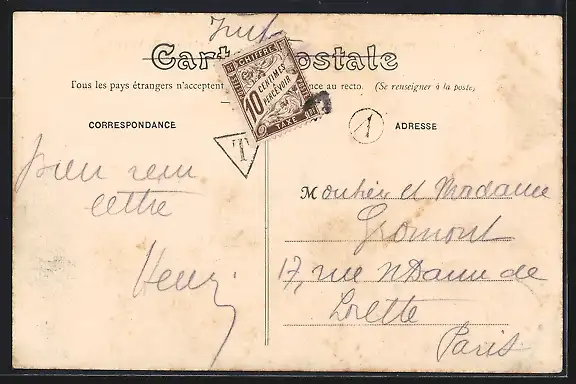 Carte Postale
Tous les pays étrangers n'acceptent ance au recto. (Se renseigner à la poste)
CHIFFRE
10 CENTIMES
A PERCEVOIR
TAXE
T
1
CORRESPONDANCE
ADRESSE
bien reçu
lettre
Henri
Monsieur et Madame
Gromont
17, rue N Dame de
Lorette
Paris